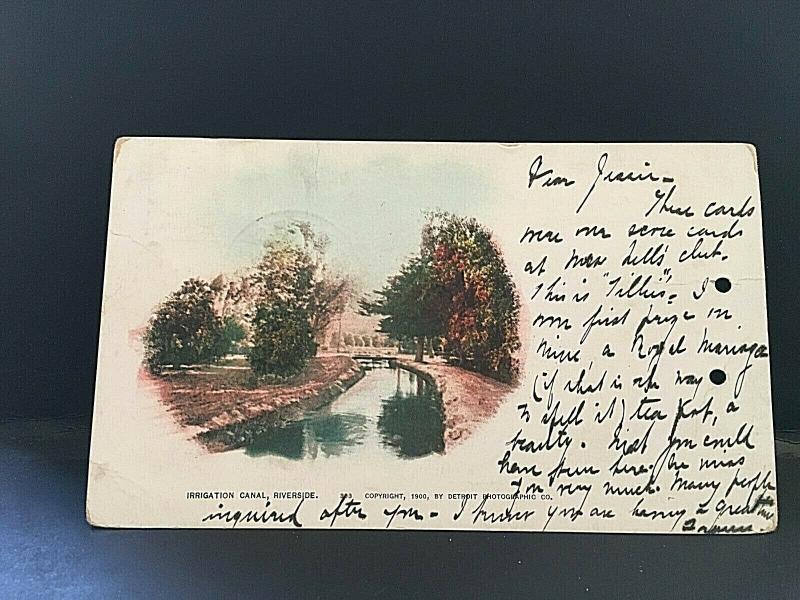 Dear Jessie -
These cards
were our score cards
at Mrs. Sell's club.
This is "Tillie's" - I
won first prize in
mine, a Royal
(if that is the way
to spell it) tea pot, a
beauty. Wish you could
have been here. We miss
you very much. Many people
inquired after you - I know you are having a great time
IRRIGATION CANAL, RIVERSIDE.
COPYRIGHT, 1900, BY DETROIT PHOTOGRAPHIC CO.